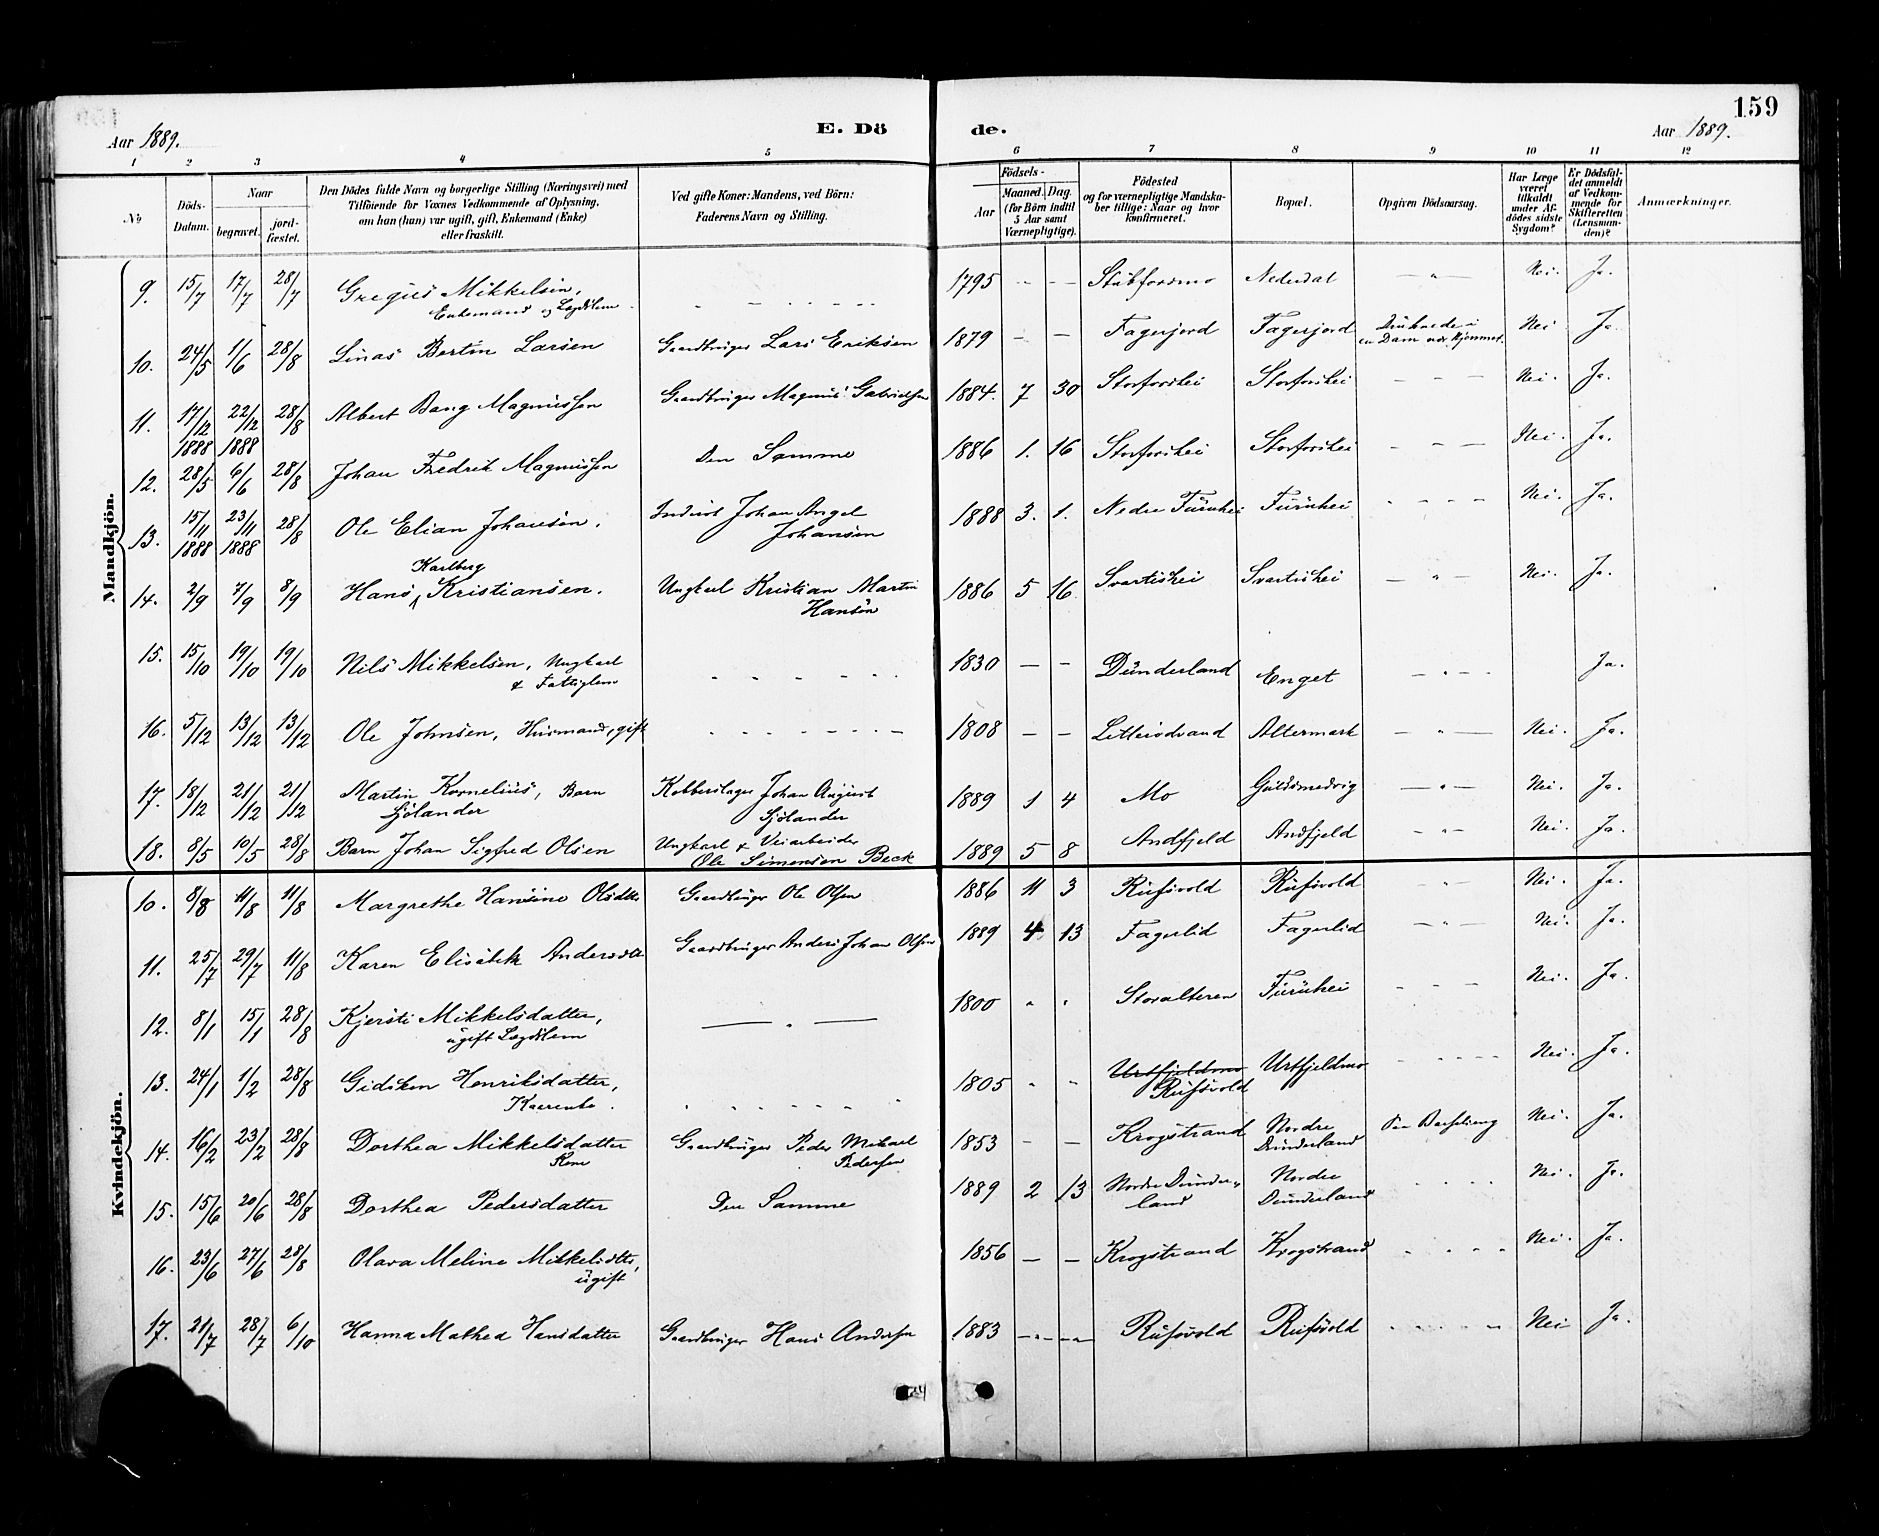 159
Aar 1889.
E. Döde.
Aar 1889.
1 2 3 4 5 6 7 8 9 10 11 12
No
Döds-Datum.
Naar
begravet.
jord-fæstet.
Den Dödes fulde Navn og borgerlige Stilling (Næringsvei) med
Tilföiende for Voxnes Vedkommende af Oplysning,
om han (hun) var ugift, gift, Enkemand (Enke)
eller fraskilt.
Ved gifte Koner: Mandens, ved Börn:
Faderens Navn og Stilling.
Födsels-
Aar
Maaned. Dag.
(for Börn indtil
5 Aar samt
Værnepligtige).
Födested
og for værnepligtige Mandska-
ber tillige: Naar og hvor
konfirmeret.
Bopæl.
Opgiven Dödsaarsag.
Har Læge
været
tilkaldt
under Af-
dödes sidste
Sygdom?
Er Dödsfal-
det anmeldt
af Vedkom-
mende for
Skifteretten
(Lensman-
den)?
Anmærkninger.
Mandkjön.
9. 15/7 17/7 28/7 Gregus Mikkelsen, Enkemand og Lægdslem 1795 Stubforsmo Nederdal Nei. Ja.
10. 24/5 1/6 28/8 Linas Bertin Larsen Gaardbruger Lars Eriksen 1879 — — Fagerjord Fagerjord Druknede i en Dam ved Hjemmet. Nei Ja.
11. 17/12 1888 22/12 1888 28/8 Albert Bang Magnussen Gaardbruger Magnus Gabrielsen 1884. 7 30 Storforshei Storforshei Nei. Ja.
12. 28/5 6/6 28/8 Johan Fredrik Magnussen Den Samme 1886 1. 16 Storforshei Storforshei Nei. Ja.
13. 15/11 1888 23/11 1888 28/8 Ole Elian Johansen. Inderst Johan Angel Johansen 1888 3. 1. Nedre Furuhei Furuhei Nei. Ja.
14. 2/9 7/9 8/9 Hans Karlberg Kristiansen. Ungkarl Kristian Martin Hansen 1886 5 16 Svartishei Svartishei Nei. Ja.
15. 15/10 19/10 19/10 Nils Mikkelsen, Ungkarl & Fattiglem 1830 — — Dunderland Enget Ja.
16. 5/12 13/12 13/12 Ole Johnsen, Husmand, gift 1808 — — Altermark Nei. Ja.
17. 18/12 21/12 21/12 Martin Kornelius, Barn Sjölander Kobberslager Johan August Sjölander 1889 1 4 Mo Guldsmedvig Nei. Ja.
18. 8/5 10/5 28/8 Barn Johan Sigfred Olsen Ungkarl & Veiarbeider Ole Simonsen Beck 1889 5 8 Andfjeld Andfjeld Nei. Ja.
Kvindekjön.
10. 8/8 11/8 11/8 Margrethe Hansine Olsdtr Gaardbruger Ole Olsen 1886 11 3 Rufsvold Rufsvold Nei. Ja.
11. 25/7 29/7 11/8 Karen Elisabet Andersdtr Gaardbruger Anders Johan Olsen 1889 4 13 Fagerlid Fagerlid Nei. Ja.
12. 8/1 15/1 28/8 Kjersti Mikkelsdatter, ugift Lægdslem 1800 Storalteren Furuhei Nei. Ja.
13. 24/1 1/2 28/8 Gidsken Henriksdatter, Kaarenke. 1805 Urtfjeldmo Rufsvold Urtfjeldmo Nei. Ja.
14. 16/2 23/2 28/8 Dorthea Mikkelsdatter Kone Gaardbruger Peder Mikael Pedersen 1853 — — Krogstrand Nordre Dunderland Paa Barselseng Nei. Ja.
15. 15/6 20/6 28/8 Dorthea Pedersdatter Den Samme 1889 2 13 Nordre Dunderland Nordre Dunderland Nei. Ja.
16. 23/6 27/6 28/8 Olava Meline Mikkelsdtr, ugift 1856 — — Krogstrand Krogstrand Nei. Ja.
17. 21/7 28/7 6/10 Hanna Mathea Hansdatter Gaardbruger Hans Andersen 1883 Rufsvold Rufsvold Nei Ja.